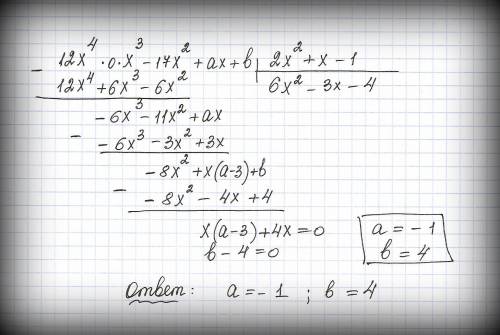 12x⁴ · 0 · x³ - 17x² + ax + b | 2x² + x - 1
- 12x⁴ + 6x³ - 6x² | 6x² - 3x - 4
- 6x³ - 11x² + ax
- - 6x³ - 3x² + 3x
- 8x² + x(a-3) + b
- - 8x² - 4x + 4
x(a-3) + 4x = 0
b - 4 = 0
a = - 1
b = 4
Ответ: a = - 1 ; b = 4